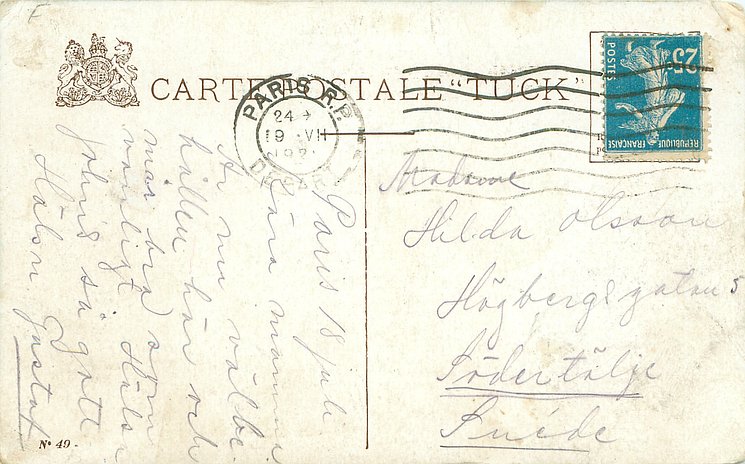 CARTE POSTALE "TUCK"
PARIS R.P.
24
19 VII
DEPART
25c
POSTES
REPUBLIQUE FRANÇAISE
Paris 18 juli
Kära mamma
Är nu välbe
hållen här och
mår bra som
vanligt. Hälsa
John så gott
Hälsn. Gustaf
Madame
Hilda Olsson
Högbergsgatan 5
Södertälje
Suède
No 49.